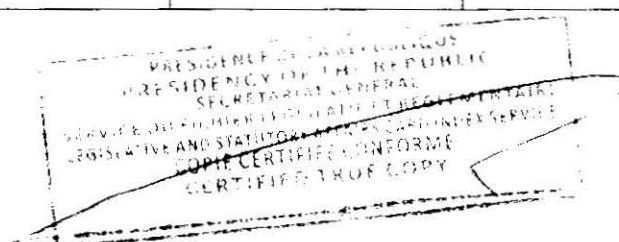 PRESIDENCE DE LA REPUBLIQUE
PRESIDENCY OF THE REPUBLIC
SECRETARIAT GENERAL
SERVICE DU FICHIER LEGISLATIF ET REGLEMENTAIRE
LEGISLATIVE AND STATUTORY AFFAIRS CARD INDEX SERVICE
COPIE CERTIFIEE CONFORME
CERTIFIED TRUE COPY